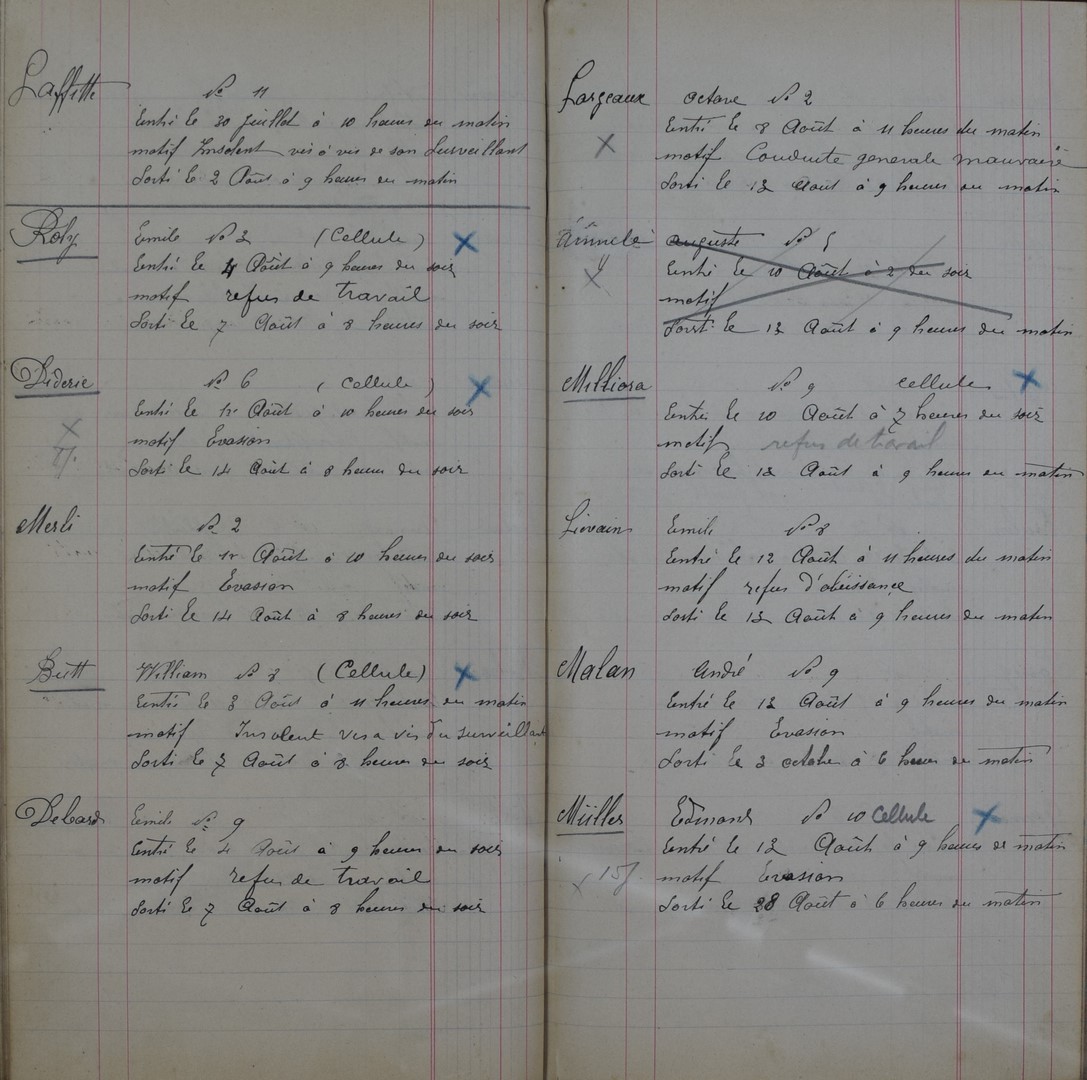 Laffitte No 11
Entré le 30 juillet à 10 heures du matin
motif Insolent vis à vis de son Surveillant
Sorti le 2 Août à 9 heures du matin
Roly Emile No 3 (Cellule) X
Entré le 4 Août à 9 heures du soir
motif refus de travail
Sorti le 7 Août à 8 heures du soir
Diderie No 6 (Cellule) X
Entré le Août à 10 heures du soir
X
motif Evasion
Sorti le 14 Août à 8 heures du soir
Merli No 2
Entré le Août à 10 heures du soir
motif Evasion
Sorti le 14 Août à 8 heures du soir
Butt William No 8 (Cellule) X
Entré le 3 Août à 11 heures du matin
motif Insolent vis a vis du surveillant
Sorti le 7 Août à 8 heures du soir
Debard Emile No 9
Entré le 4 Août à 9 heures du soir
motif refus de travail
Sorti le 7 Août à 8 heures du soir
Largeaux octave No 2
Entré le 8 Août à 11 heures du matin
X
motif Conduite generale mauvaise
Sorti le 13 Août à 9 heures du matin
auguste No 5
Entré le 10 Août à 2 du soir
X
motif
Sorti le 13 Août à 9 heures du matin
Milliora No 9 cellule X
Entré le 10 Août à 7 heures du soir
motif refus de travail
Sorti le 13 Août à 9 heures du matin
Lievain Emile No 8
Entré le 12 Août à 11 heures du matin
motif refus d'obéissance
Sorti le 13 Août à 9 heures du matin
Malan André No 9
Entré le 13 Août à 9 heures du matin
motif Evasion
Sorti le 3 octobre à 6 heures du matin
Müller Edmond No 10 Cellule X
Entré le 13 Août à 9 heures du matin
X 15j motif Evasion
Sorti le 28 Août à 6 heures du matin